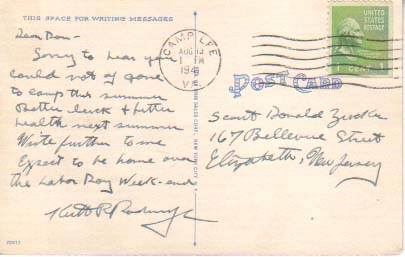 THIS SPACE FOR WRITING MESSAGES
Dear Don-
Sorry to hear you
could not of gone
to camp this summer
Better luck & better
health next summer
Write further to me
Expect to be home over
the Labor Day Week-end
CAMP LEE
AUG 13
1 PM
194
VA.
UNITED
STATES
POSTAGE
1 CENT 1
POST CARD
Scout Donald Zucker
167 Bellevue Street
Elizabeth, New Jersey